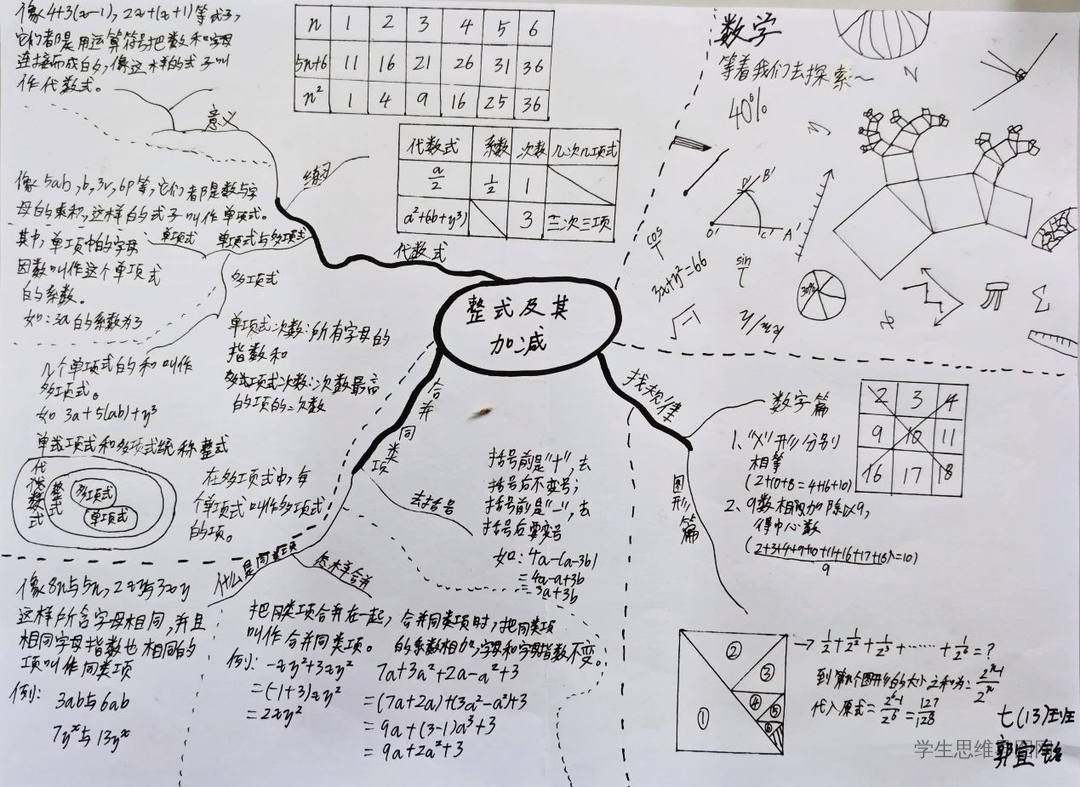 像4+3(x-1), 2x+(x+1)等式子,
它们都是用运算符号把数和字母
连接而成的,像这样的式子叫
作代数式。
意义
n 1 2 3 4 5 6
5n+6 11 16 21 26 31 36
n² 1 4 9 16 25 36
代数式 系数 次数 几次几项式
a/2 1/2 1
a²+6b+y³) 3 三次三项
练习
代数式
像5ab,b,3v,6p等,它们都是数与字
母的乘积,这样的式子叫作单项式。
单项式 单项式与多项式
其中,单项中的字母
因数叫作这个单项式
的系数。
如:3a的系数为3
多项式
单项式次数:所有字母的
指数和
多项式次数:次数最高
的项的次数
几个单项式的和叫作
多项式。
如3a+5(ab)+y³
单项式和多项式统称整式
代数式
整式
多项式
单项式
在多项式中,每
个单项式叫作多项式
的项。
整式及其
加减
数学
等着我们去探索~
40%
N
y
B'
O'
C'
A'
cos
sin
3x+y²=66
30%
x
找规律
数字篇
1、“X”形分别
相等
(2+10+8=4+16+10)
2、9数相加除以9,
得中心数
(2+3+4+9+10+11+16+17+18)=10)
9
2 3 4
9 10 11
16 17 18
图形篇
①
②
③
④
⑤
⑥
→ 1/2+1/2²+1/2³+……+1/2⁶=?
到第n个图形的大小之和为:
代入原式= =127/128
合并同类项
去括号
括号前是“+”,去
括号后不变号;
括号前是“-”,去
括号后要变号
如:4a-(a-3b)
=4a-a+3b
=3a+3b
什么是同类项
怎样合并
像8n与5n,2x²y与3x²y
这样所含字母相同,并且
相同字母指数也相同的
项叫作同类项
例:
3ab与6ab
7yx与13yx
把同类项合并在一起,
叫作合并同类项。
例:-xy²+3xy²
=(-1+3)xy²
=2xy²
合并同类项时,把同类项
的系数相加,字母和字母指数不变。
7a+3a²+2a-a²+3
=(7a+2a)+(3a²-a²)+3
=9a+(3-1)a²+3
=9a+2a²+3
七(13)班